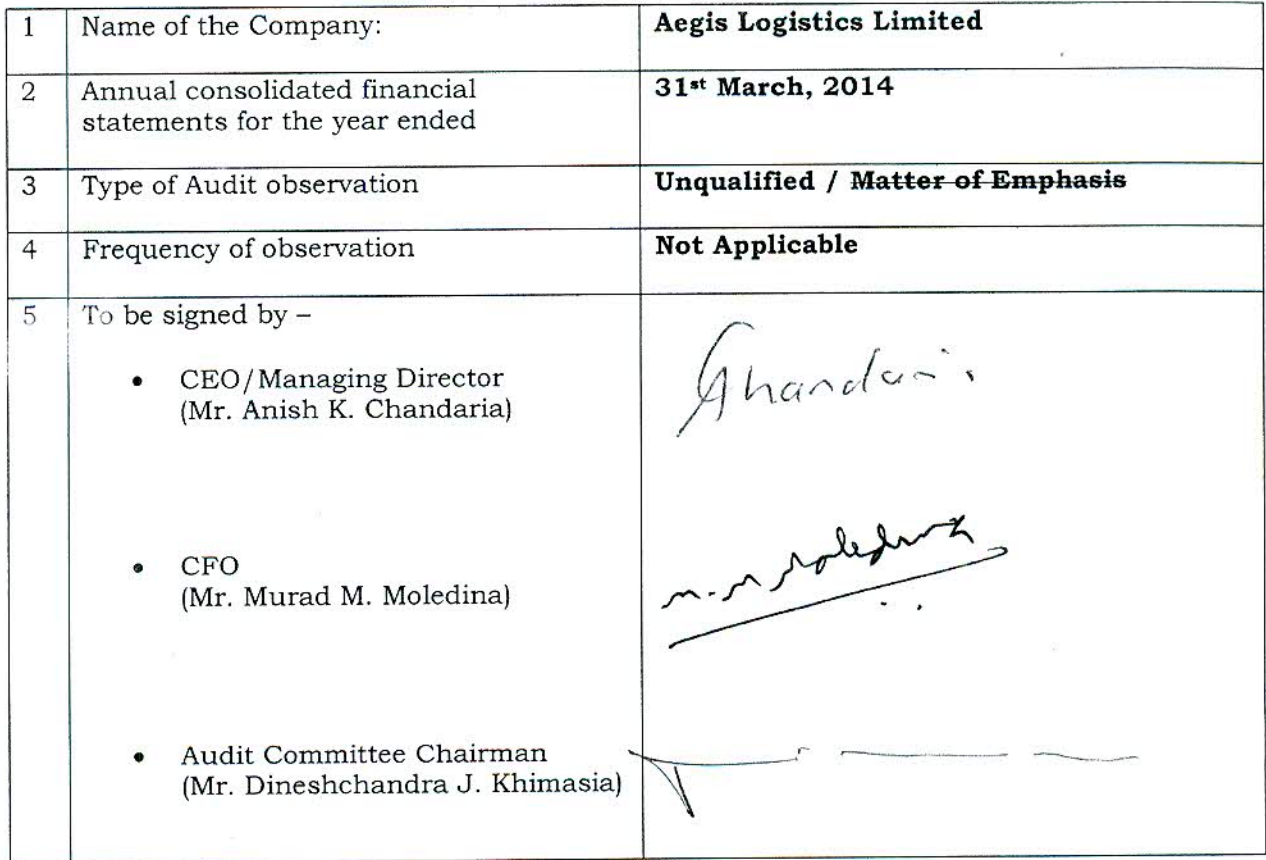 1 Name of the Company: Aegis Logistics Limited
2 Annual consolidated financial 31st March, 2014
statements for the year ended
3 Type of Audit observation Unqualified / Matter of Emphasis
4 Frequency of observation Not Applicable
5 To be signed by –
• CEO/Managing Director
(Mr. Anish K. Chandaria)
• CFO
(Mr. Murad M. Moledina)
• Audit Committee Chairman
(Mr. Dineshchandra J. Khimasia)